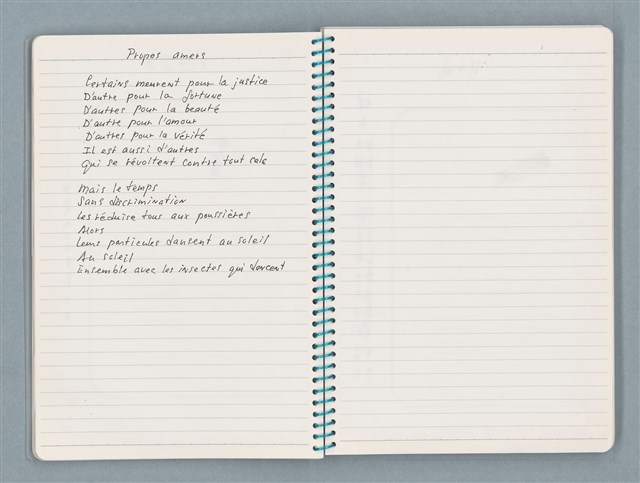 Propos amers
Certains meurent pour la justice
D'autre pour la fortune
D'autres pour la beauté
D'autre pour l'amour
D'autres pour la vérité
Il est aussi d'autres
Qui se révoltent contre tout cela
Mais le temps
Sans discrimination
Les réduise tous aux poussières
Alors
Leurs particules dansent au soleil
Au soleil
Ensemble avec les insectes qui dancent